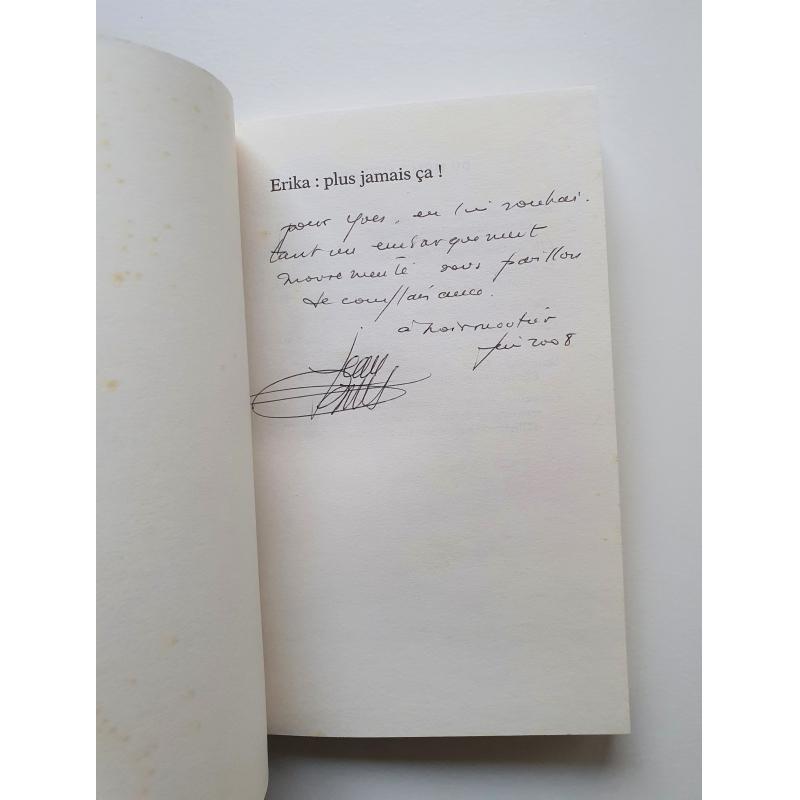 Erika : plus jamais ça !
pour Yves, en lui souhai-
tant un embarquement
mouvementé sous pavillon
de complaisance.
à Noirmoutier
Jean